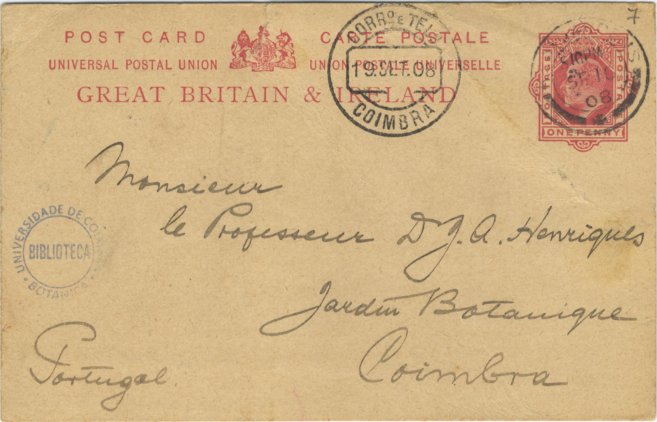 7
POST CARD CARTE POSTALE
UNIVERSAL POSTAL UNION UNION POSTALE UNIVERSELLE
GREAT BRITAIN & IRELAND
CORRO E TEL
19.SET.08
COIMBRA
08
POSTAGE
ONE PENNY
Monsieur
le Professeur D J. A. Henriques
Jardin Botanique
Coimbra
Portugal.
UNIVERSIDADE DE CO
BIBLIOTECA
BOTANICA